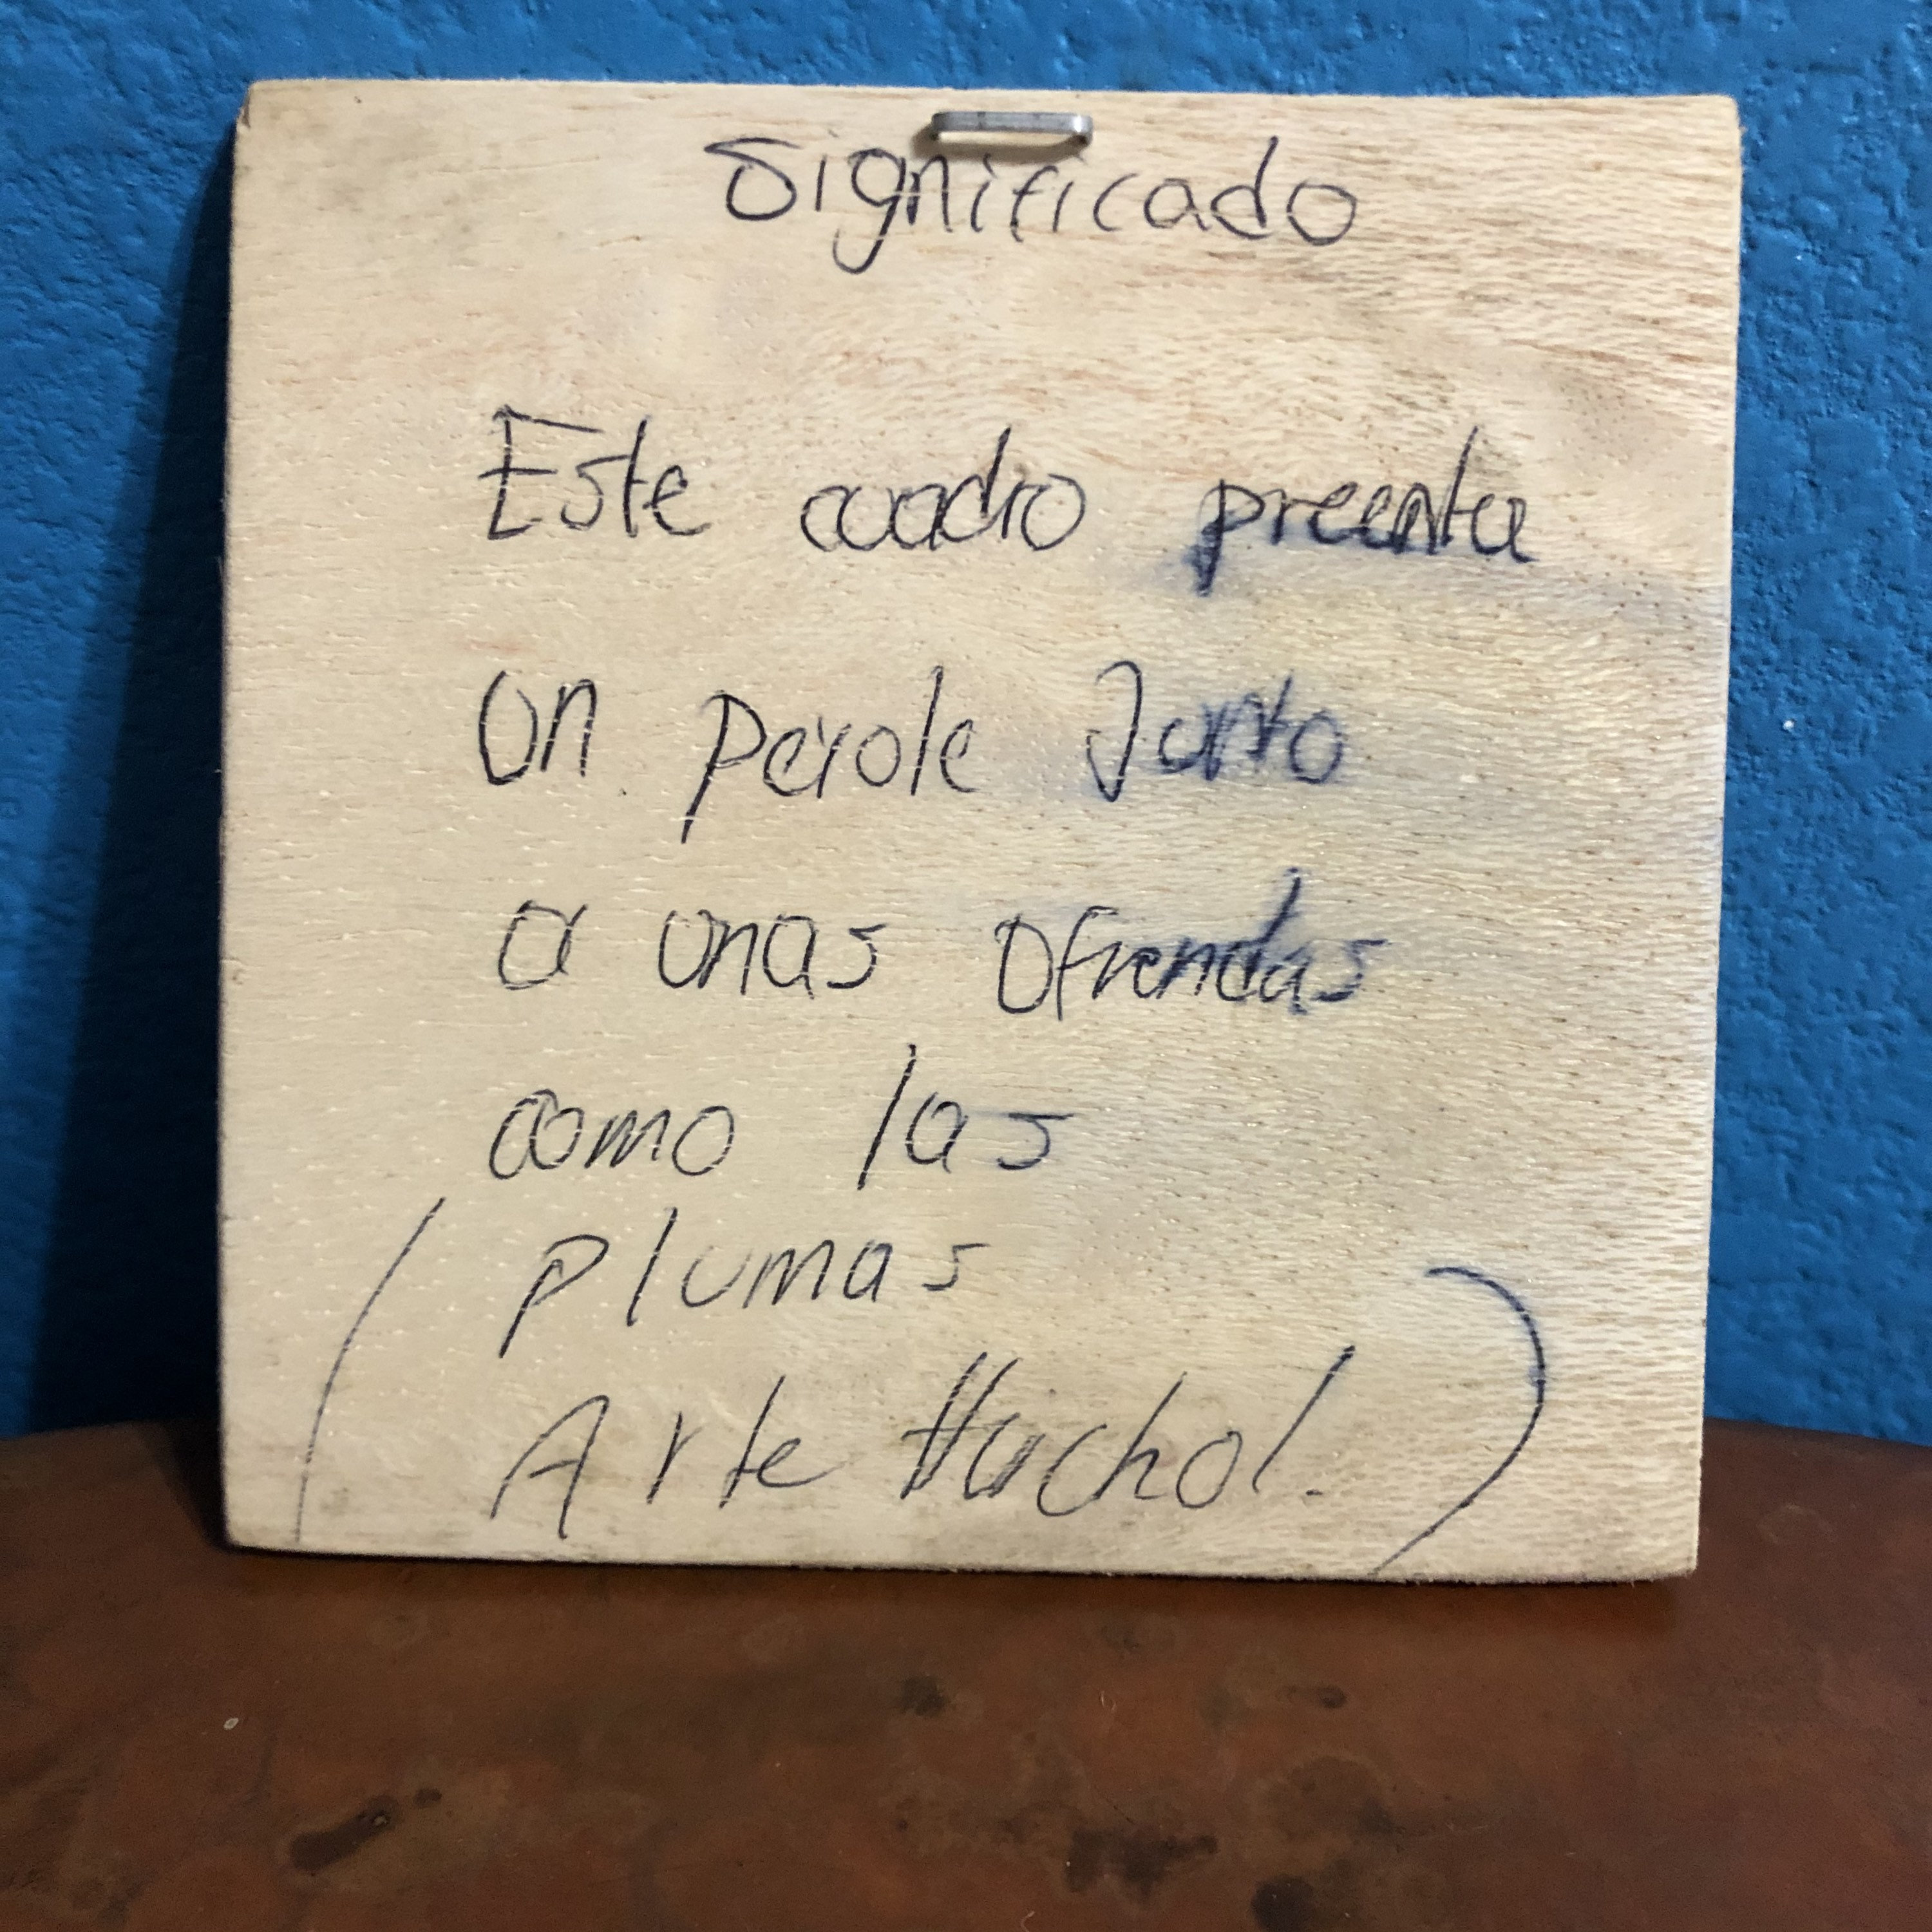 Significado
Este cuadro preenta
un peyole Junto
a unas Ofrendas
como las
plumas
(Arte Huichol.)